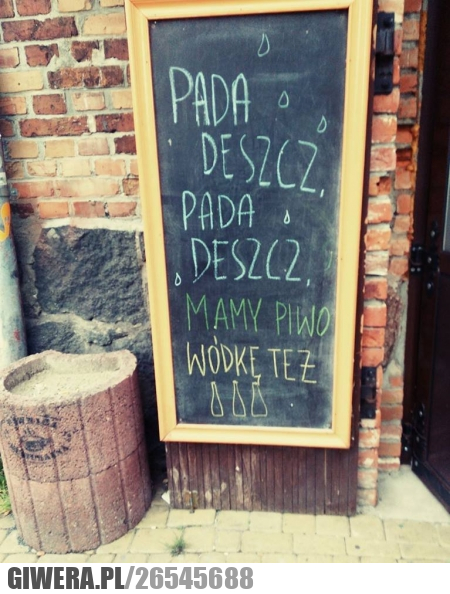 PADA
DESZCZ,
PADA
DESZCZ,
MAMY PIWO
WÓDKĘ TEŻ
GIWERA.PL/26545688